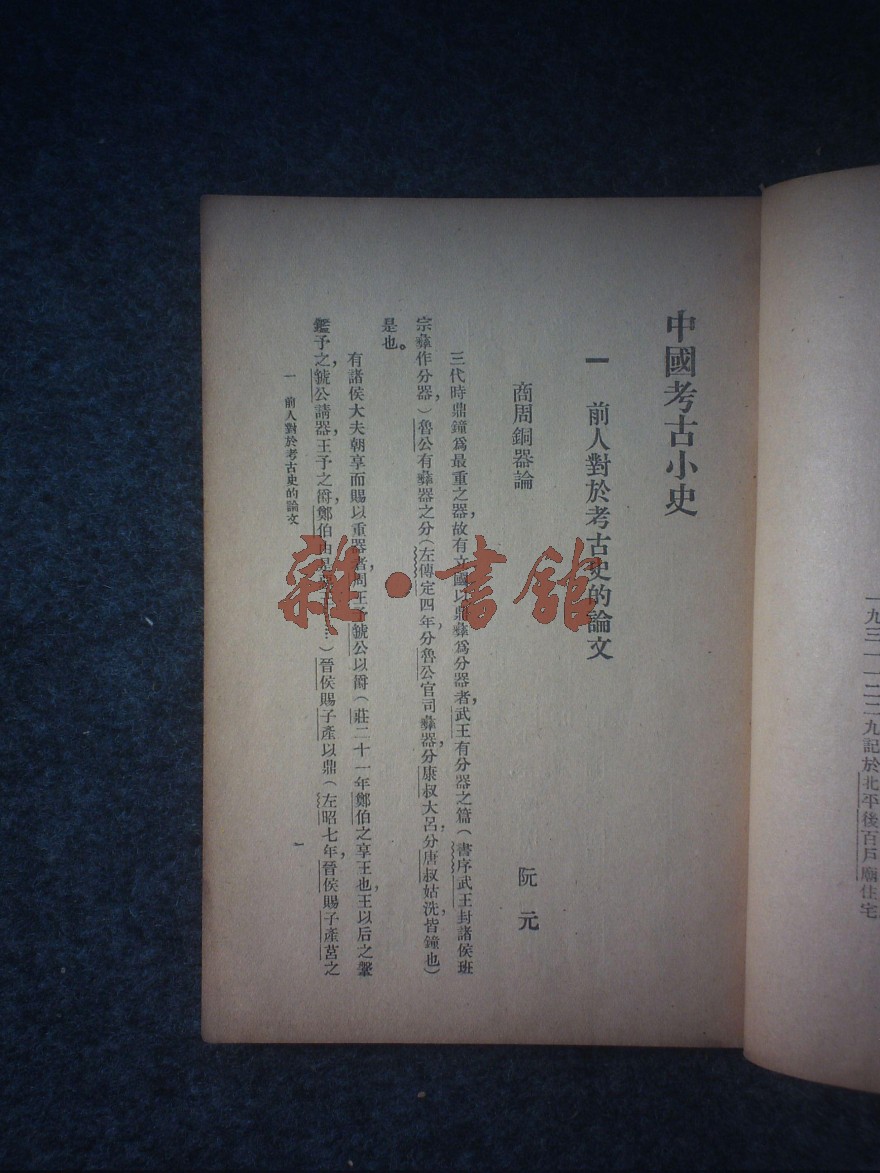 一九三一一二二九記於北平後百戶廟住宅
中國考古小史
一 前人對於考古史的論文
商周銅器論 阮元
三代時鼎鐘爲最重之器，故有立國以鼎彝爲分器者，武王有分器之篇（書序武王封諸侯班
宗彝作分器，）魯公有彝器之分（左傳定四年，分魯公官司彝器，分康叔大呂，分唐叔姑洗，皆鐘也）
是也。
有諸侯大夫朝享而賜以重器者，周王予虢公以爵（莊二十一年鄭伯之享王也，王以后之鞶
鑑予之，虢公請器，王予之爵，鄭伯由是）晉侯賜子產以鼎（左昭七年，晉侯賜子產莒之
一 前人對於考古史的論文
一
雜·書館